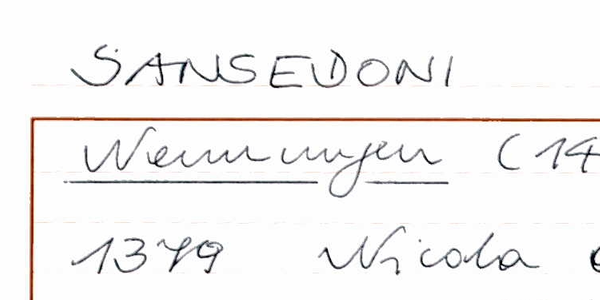 SANSEDONI
Nennungen (14
1379 Nicola